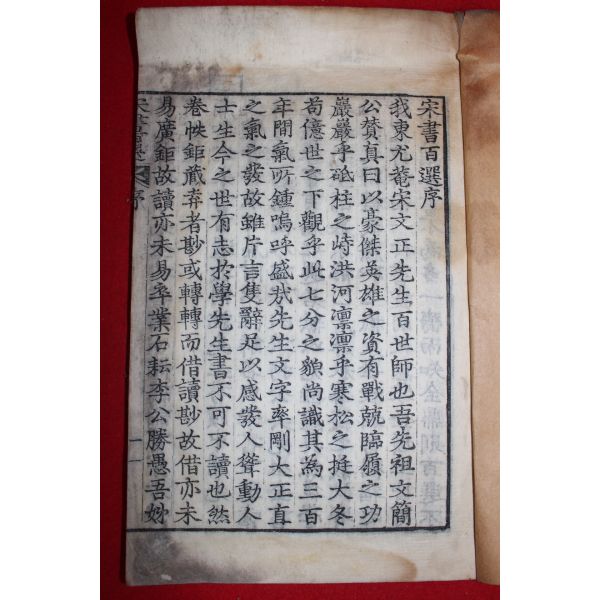 宋書百選序
我東尤菴宋文正先生百世師也吾先祖文簡
公贊真曰以豪傑英雄之資有戰兢臨履之功
巖巖乎砥柱之峙洪河凛凛乎寒松之挺大冬
苟億世之下觀乎此七分之貌尚識其為三百
年間氣所鍾嗚呼盛㢤先生文字率剛大正直
之氣之發故雖片言隻辭足以感發人聳動人
士生今之世有志於學先生書不可不讀也然
卷帙鉅藏弆者尠或轉轉而借讀尠故借亦未
易廣鉅故讀亦未易卒業石耘李公勝愚吾妙
序
一